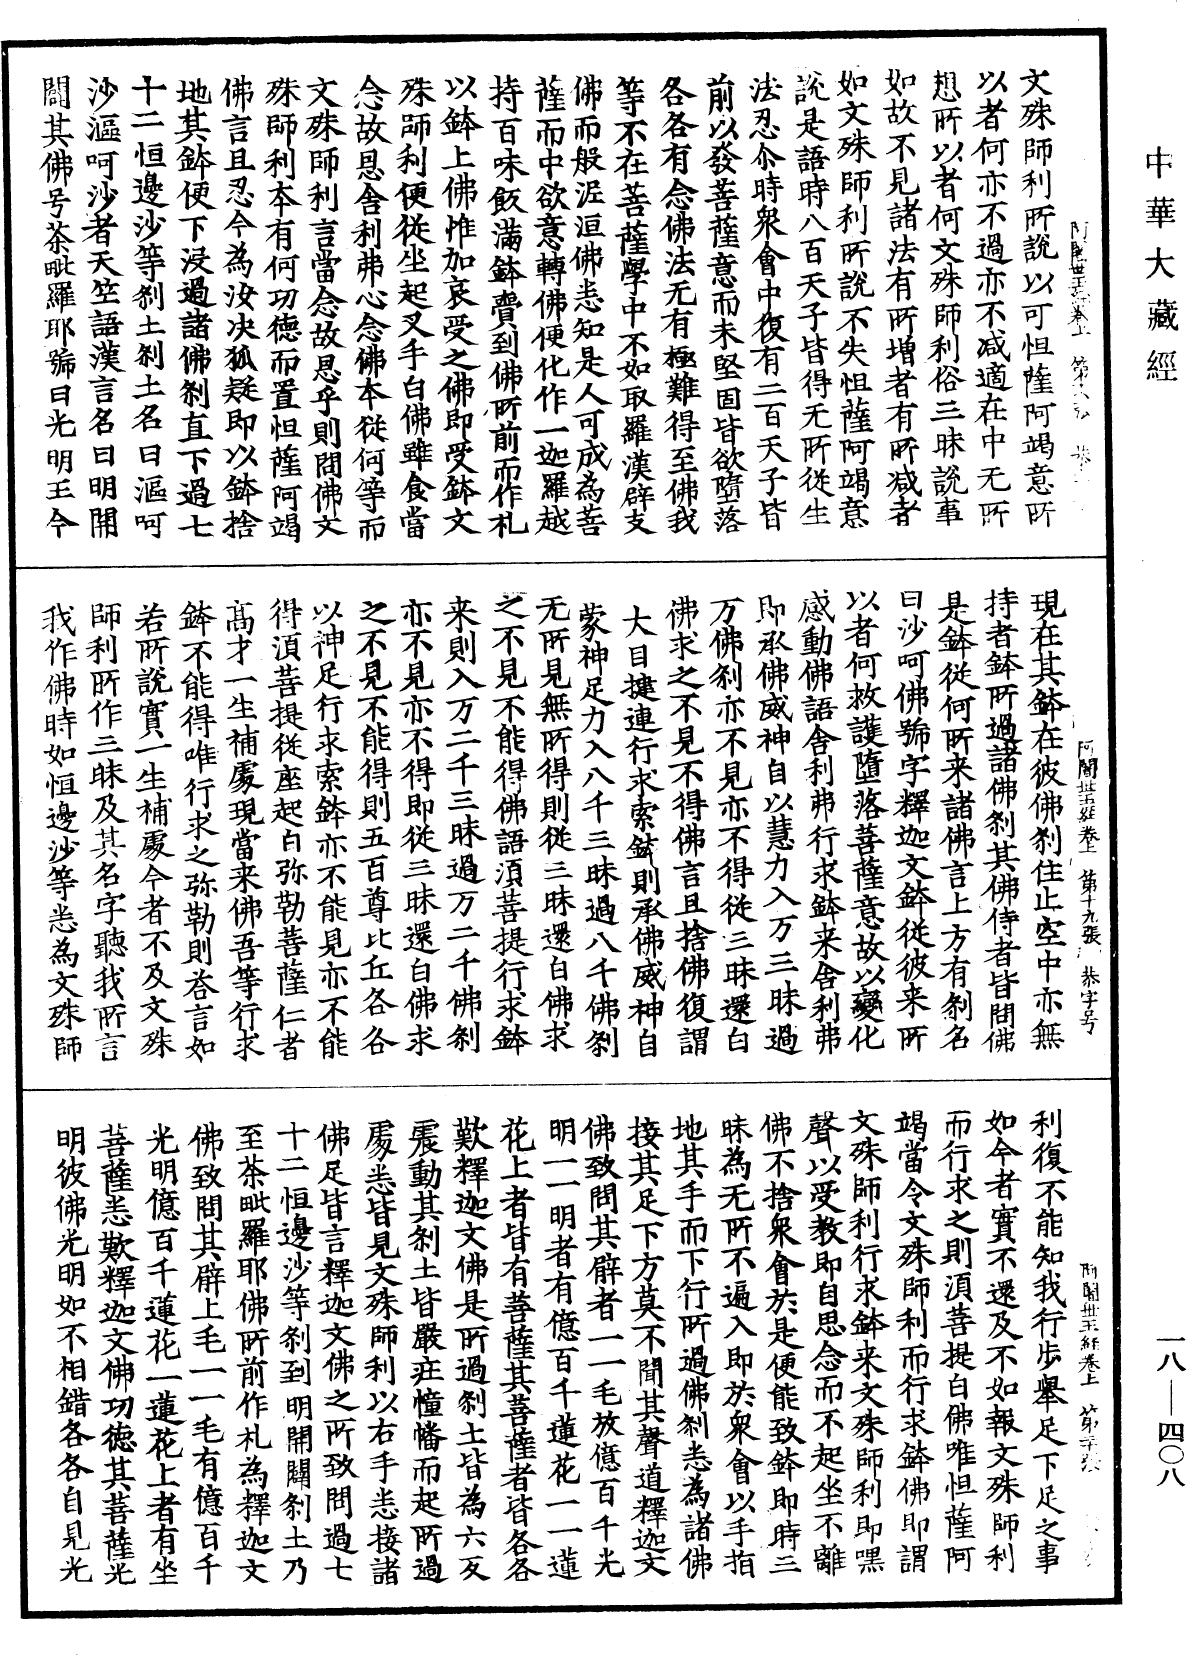 中華大藏經
文殊師利所說以可怛薩阿竭意所
以者何亦不過亦不減適在中无所
想所以者何文殊師利俗三昧說事
如故不見諸法有所增者有所減者
如文殊師利所說不失怛薩阿竭意
說是語時八百天子皆得无所從生
法忍尒時衆會中復有二百天子皆
前以發菩薩意而未堅固皆欲墮落
各各有念佛法无有極難得至佛我
等不在菩薩學中不如取羅漢辟支
佛而般泥洹佛悉知是人可成為菩
薩而中欲意轉佛便化作一迦羅越
持百味飯滿鉢賷到佛所前而作礼
以鉢上佛惟加哀受之佛即受鉢文
殊師利便從坐起叉手白佛雖食當
念故恩舍利弗心念佛本從何等而
文殊師利言當念故恩乎則問佛文
殊師利本有何功德而置怛薩阿竭
佛言且忍今為汝决狐疑即以鉢捨
地其鉢便下浸過諸佛刹直下過七
十二恒邊沙等刹土刹土名曰漚呵
沙漚呵沙者天竺語漢言名曰明開
闢其佛号荼毗羅耶號曰光明王今
現在其鉢在彼佛刹住止空中亦無
持者鉢所過諸佛刹其佛侍者皆問佛
是鉢從何所来諸佛言上方有刹名
曰沙呵佛號字釋迦文鉢從彼来所
以者何救護墮落菩薩意故以變化
感動佛語舍利弗行求鉢来舍利弗
即承佛威神自以慧力入万三昧過
万佛刹亦不見亦不得從三昧還白
佛求之不見不得佛言且捨佛復謂
大目揵連行求索鉢則承佛威神自
蒙神足力入八千三昧過八千佛刹
无所見無所得則從三昧還白佛求
之不見不能得佛語須菩提行求鉢
来則入万二千三昧過万二千佛刹
亦不見亦不得即從三昧還白佛求
之不見不能得則五百尊比丘各各
以神足行求索鉢亦不能見亦不能
得須菩提從座起白弥勒菩薩仁者
高才一生補處現當来佛吾等行求
鉢不能得唯行求之弥勒則荅言如
若所說實一生補處今者不及文殊
師利所作三昧及其名字聽我所言
我作佛時如恒邊沙等悉為文殊師
阿闍世王經卷上 第十九張 恭字号
利復不能知我行步舉足下足之事
如今者實不還及不如報文殊師利
而行求之則須菩提白佛唯怛薩阿
竭當令文殊師利而行求鉢佛即謂
文殊師利行求鉢来文殊師利即嘿
聲以受教即自思念而不起坐不離
佛不捨衆會於是便能致鉢即時三
昧為无所不遍入即於衆會以手指
地其手而下行所過佛刹悉為諸佛
接其足下方莫不聞其聲道釋迦文
佛致問其臂者一一毛放億百千光
明一一明者有億百千蓮花一一蓮
花上者皆有菩薩其菩薩者皆各各
歎釋迦文佛是所過刹土皆為六反
震動其刹土皆嚴莊幢幡而起所過
處悉皆見文殊師利以右手悉接諸
佛足皆言釋迦文佛之所致問過七
十二恒邊沙等刹到明開闢刹土乃
至荼毗羅耶佛所前作札為釋迦文
佛致問其臂上毛一一毛有億百千
光明億百千蓮花一蓮花上者有坐
菩薩悉歎釋迦文佛功德其菩薩光
明彼佛光明如不相錯各各自見光
阿闍世王經卷上
一八—四〇八